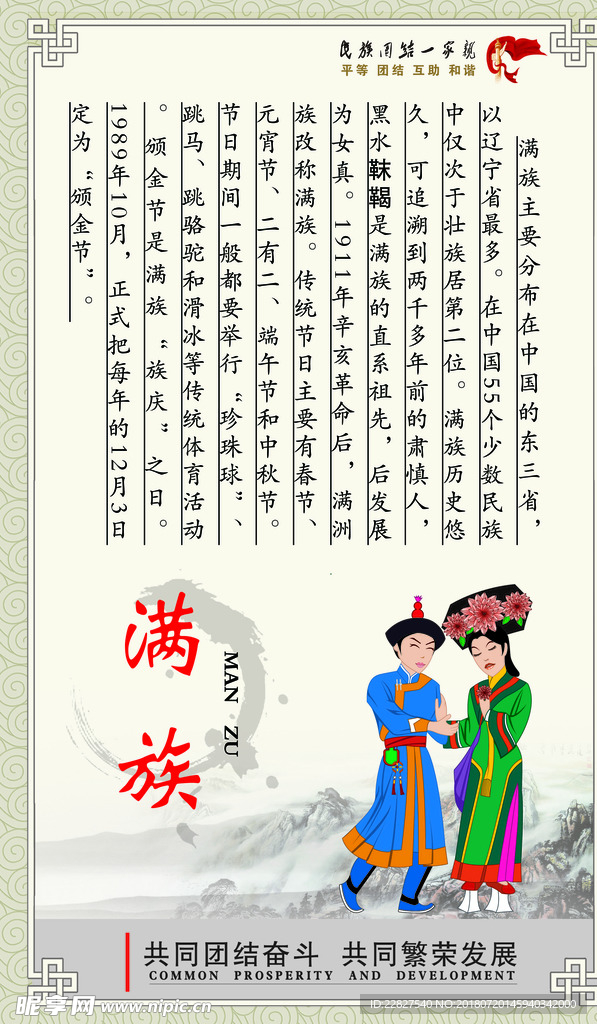 民族团结一家亲
平等 团结 互助 和谐
满族主要分布在中国的东三省，
以辽宁省最多。在中国55个少数民族
中仅次于壮族居第二位。满族历史悠
久，可追溯到两千多年前的肃慎人，
黑水靺鞨是满族的直系祖先，后发展
为女真。1911年辛亥革命后，满洲
族改称满族。传统节日主要有春节、
元宵节、二有二、端午节和中秋节。
节日期间一般都要举行“珍珠球”、
跳马、跳骆驼和滑冰等传统体育活动
。颁金节是满族“族庆”之日。
1989年10月，正式把每年的12月3日
定为“颁金节”。
满族
MAN ZU
共同团结奋斗 共同繁荣发展
COMMON PROSPERITY AND DEVELOPMENT
昵享网 www.nipic.cn
ID:22827540 NO:20180720145940342000